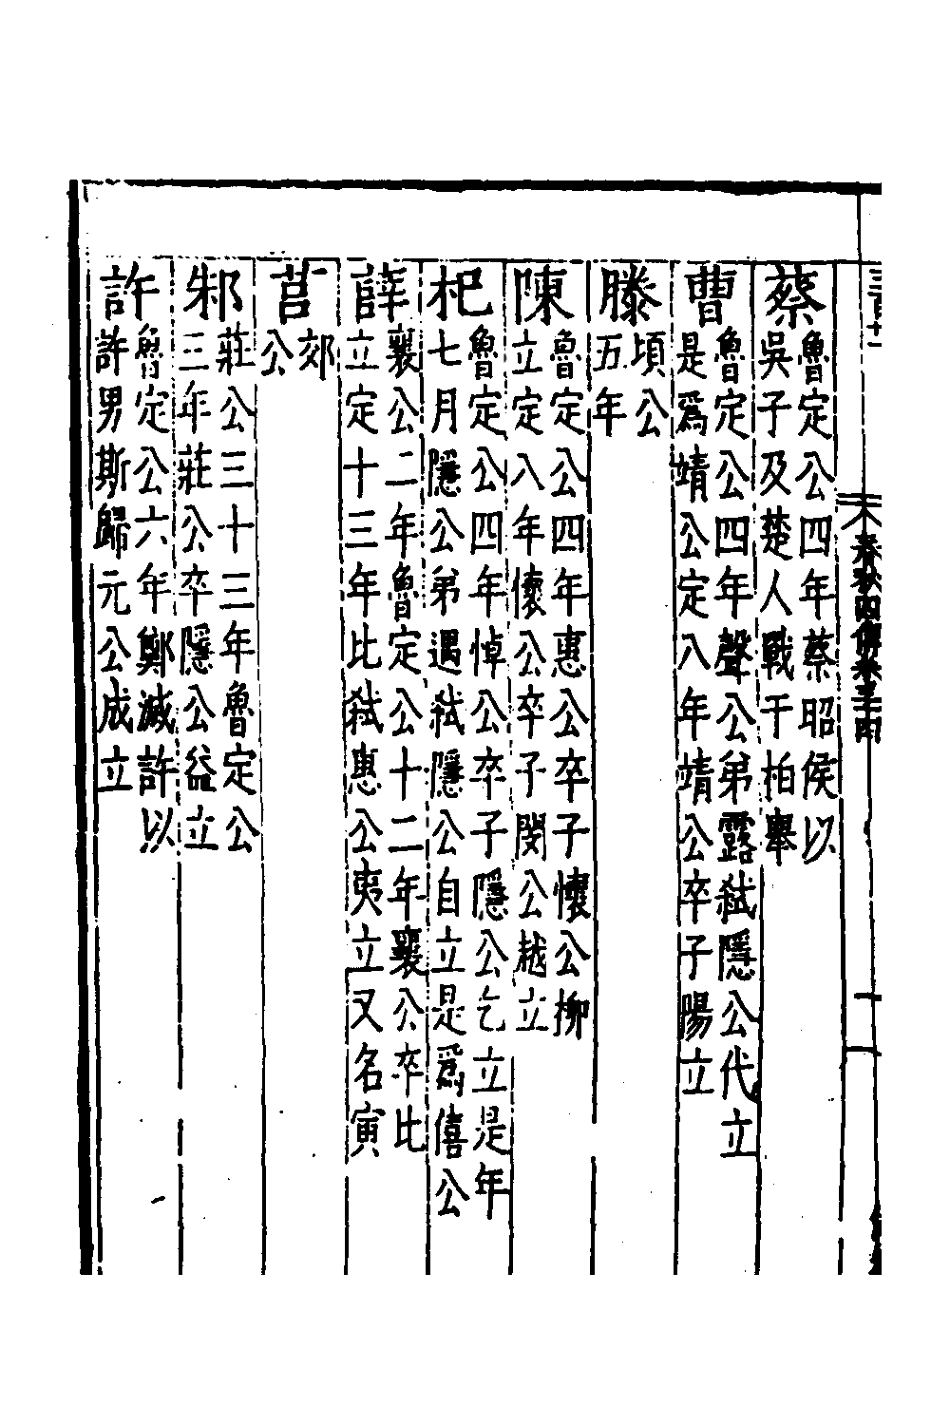 春秋四傳卷三十四
蔡
魯定公四年蔡昭侯以
吳子及楚人戰于柏舉
曹
魯定公四年聲公弟露弒隱公代立
是爲靖公定八年靖公卒子陽立
滕
頃公
五年
陳
魯定公四年惠公卒子懷公柳
立定八年懷公卒子閔公越立
杞
魯定公四年悼公卒子隱公乞立是年
七月隱公弟遇弒隱公自立是爲僖公
薛
襄公二年魯定公十二年襄公卒比
立定十三年比弒惠公夷立又名寅
莒
郊
公
邾
莊公三十三年魯定公
三年莊公卒隱公益立
許
魯定公六年鄭滅許以
許男斯歸元公成立